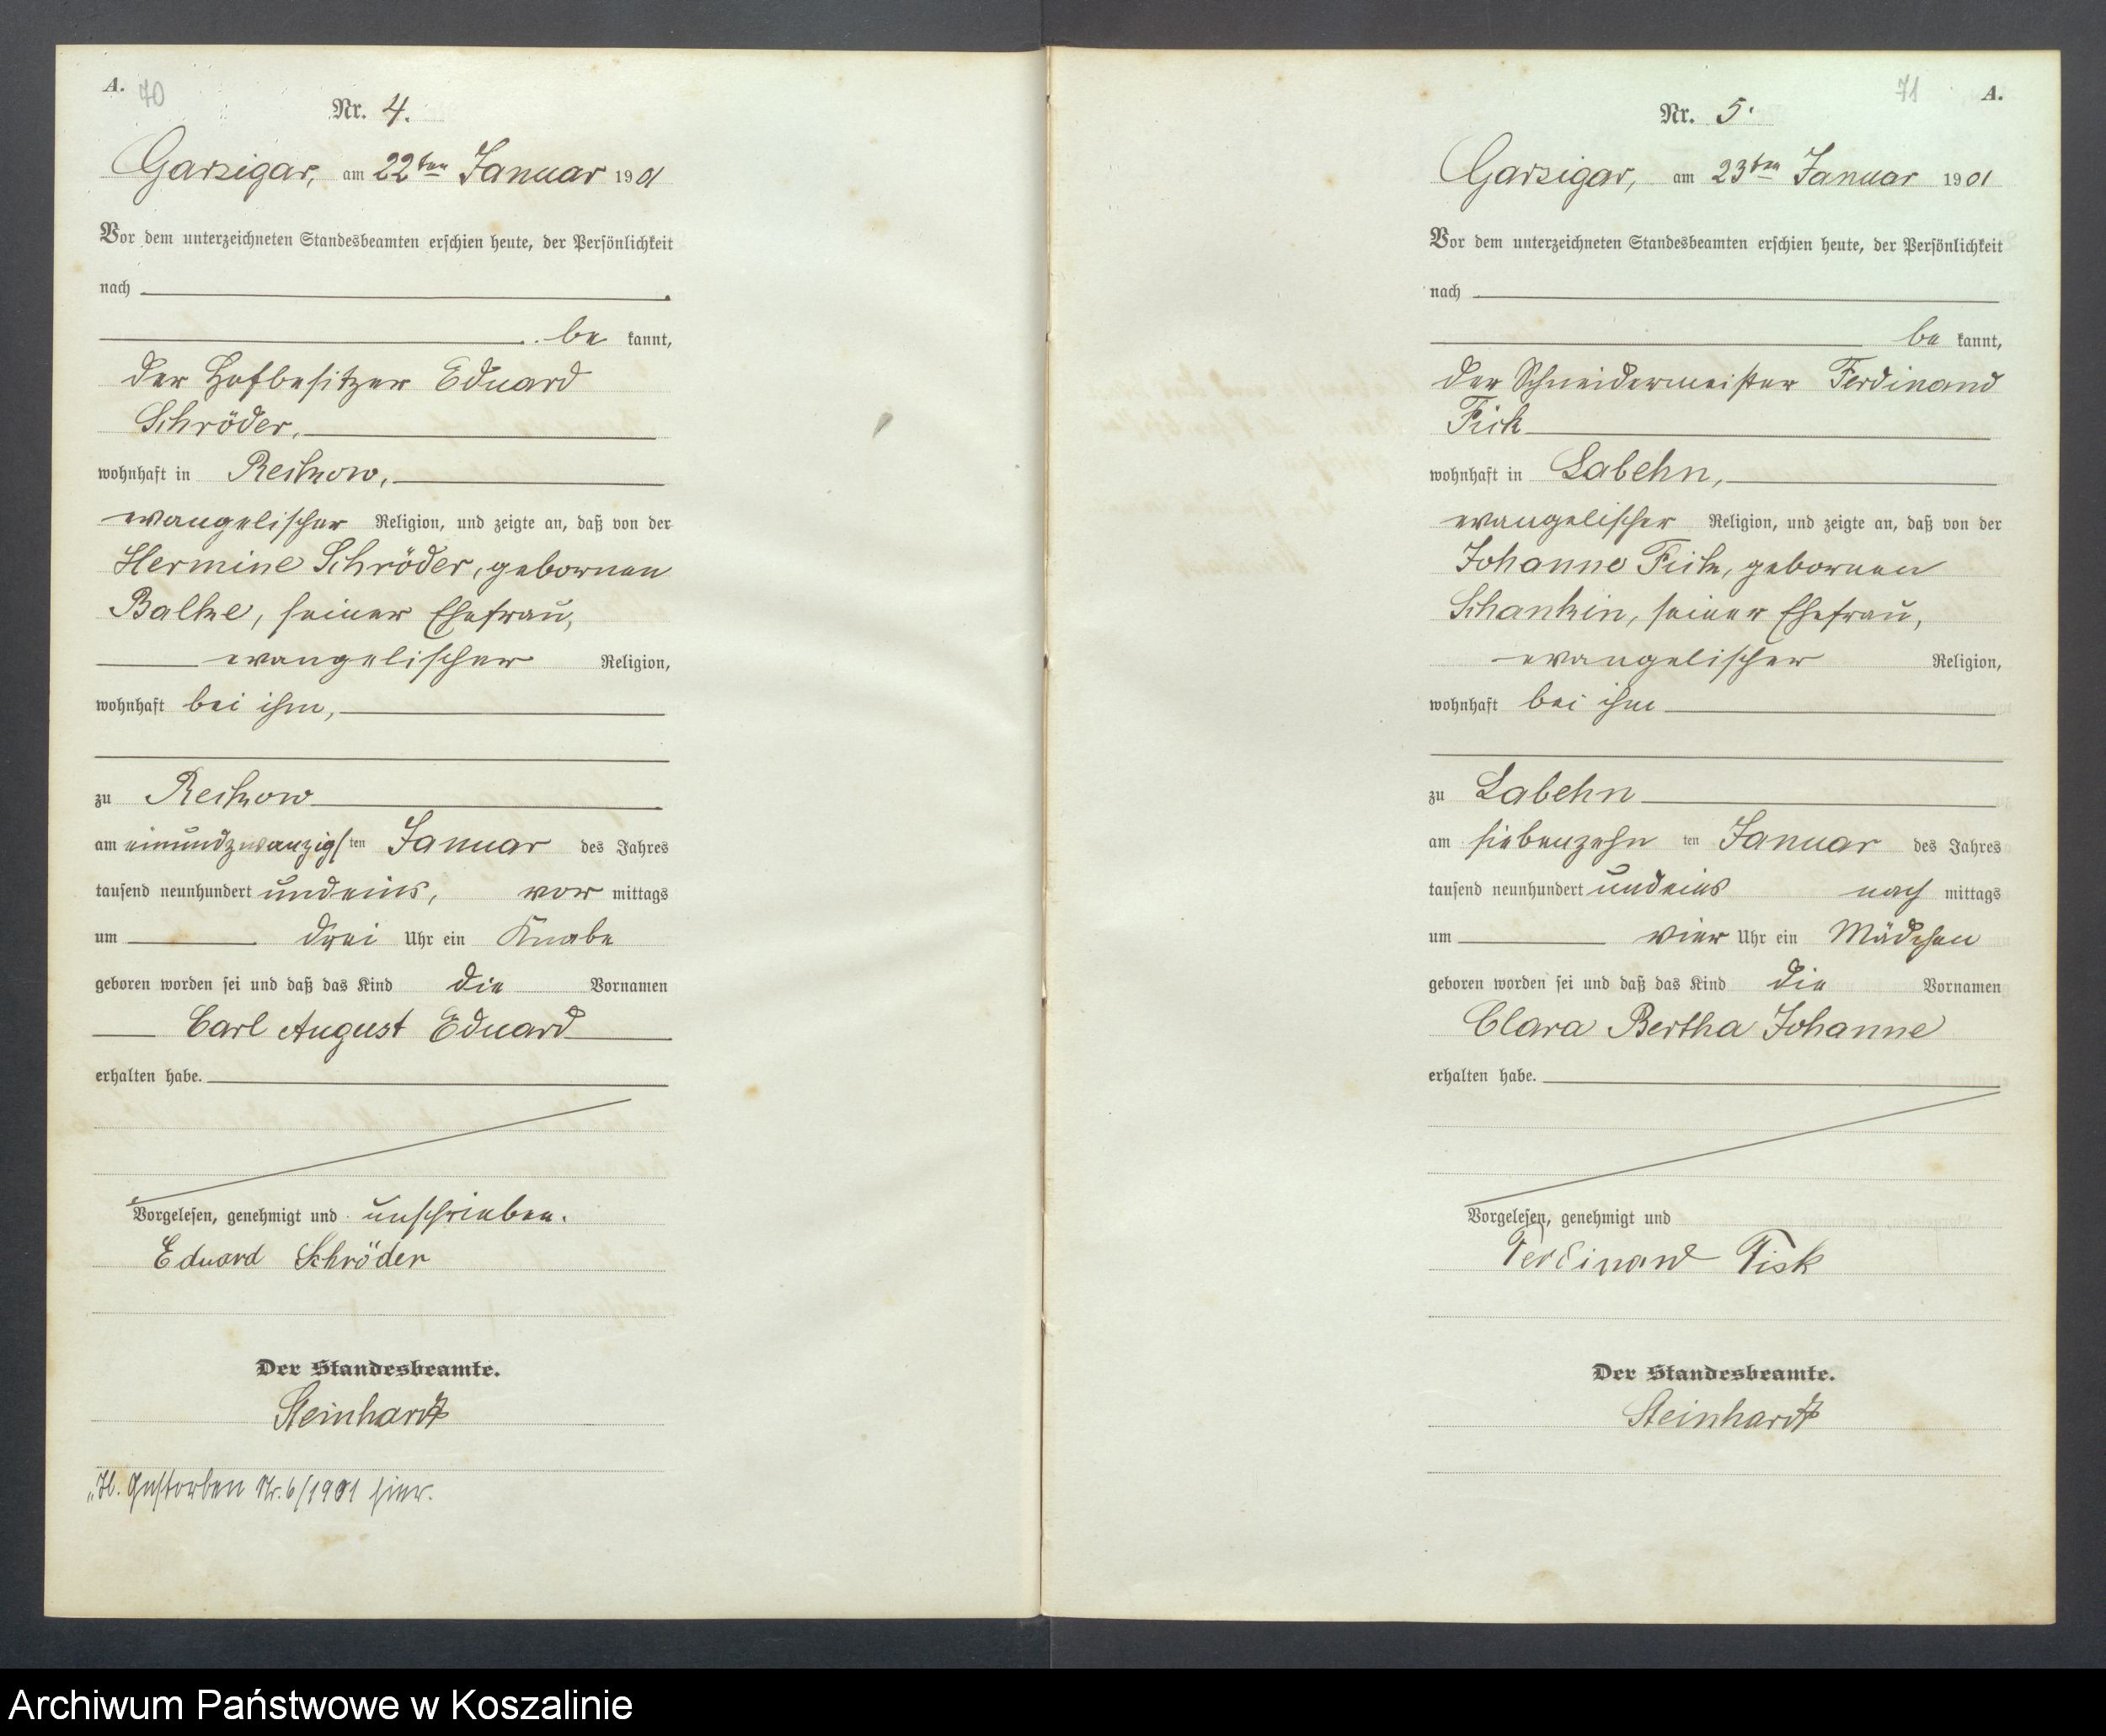 A. 70
Nr. 4.
Garzigar, am 22ten Januar 1901
Vor dem unterzeichneten Standesbeamten erschien heute, der Persönlichkeit
nach
be kannt,
der Hofbesitzer Eduard
Schröder,
wohnhaft in Reckow,
evangelischer Religion, und zeigte an, daß von der
Hermine Schröder, gebornen
Balke, seiner Ehefrau,
evangelischer Religion,
wohnhaft bei ihm,
zu Reckow
am einundzwanzigsten Januar des Jahres
tausend neunhundert undeins, vor mittags
um drei Uhr ein Knabe
geboren worden sei und daß das Kind die Vornamen
Carl August Eduard
erhalten habe.
Vorgelesen, genehmigt und unterschrieben.
Eduard Schröder
Der Standesbeamte.
Steinhardt
Gestorben Nr. 6/1901 hier.
71 A.
Nr. 5.
Garzigar, am 23ten Januar 1901
Vor dem unterzeichneten Standesbeamten erschien heute, der Persönlichkeit
nach
be kannt,
der Schneidermeister Ferdinand
Fick
wohnhaft in Labehn,
evangelischer Religion, und zeigte an, daß von der
Johanne Fick, gebornen
Schankin, seiner Ehefrau,
evangelischer Religion,
wohnhaft bei ihm
zu Labehn
am siebenzehn ten Januar des Jahres
tausend neunhundert undeins nach mittags
um vier Uhr ein Mädchen
geboren worden sei und daß das Kind die Vornamen
Clara Bertha Johanne
erhalten habe.
Vorgelesen, genehmigt und
Ferdinand Fick
Der Standesbeamte.
Steinhardt
Archiwum Państwowe w Koszalinie